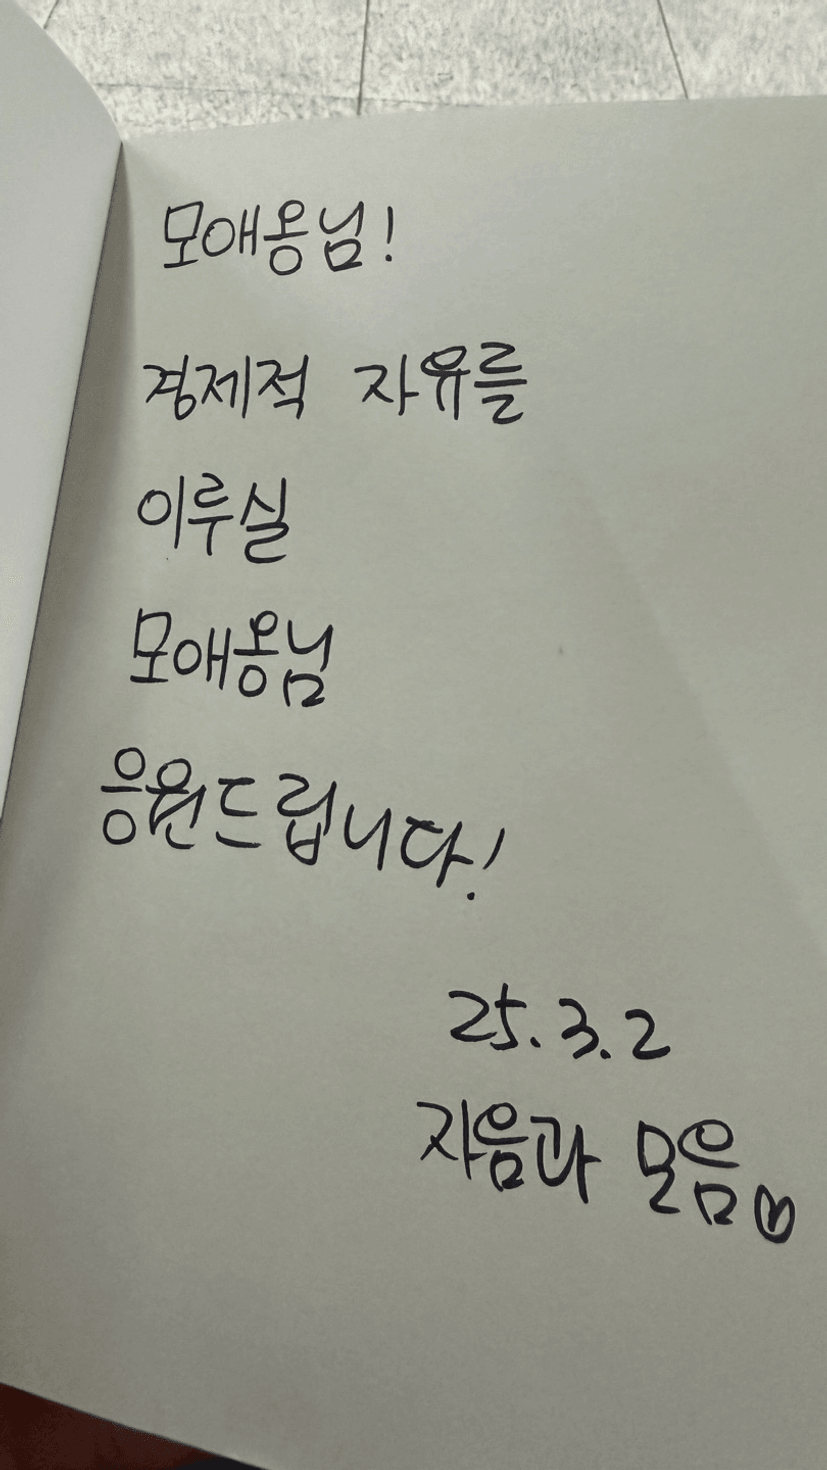 모애옹님!
경제적 자유를
이루실
모애옹님
응원드립니다!
25.3.2
자음과 모음♡